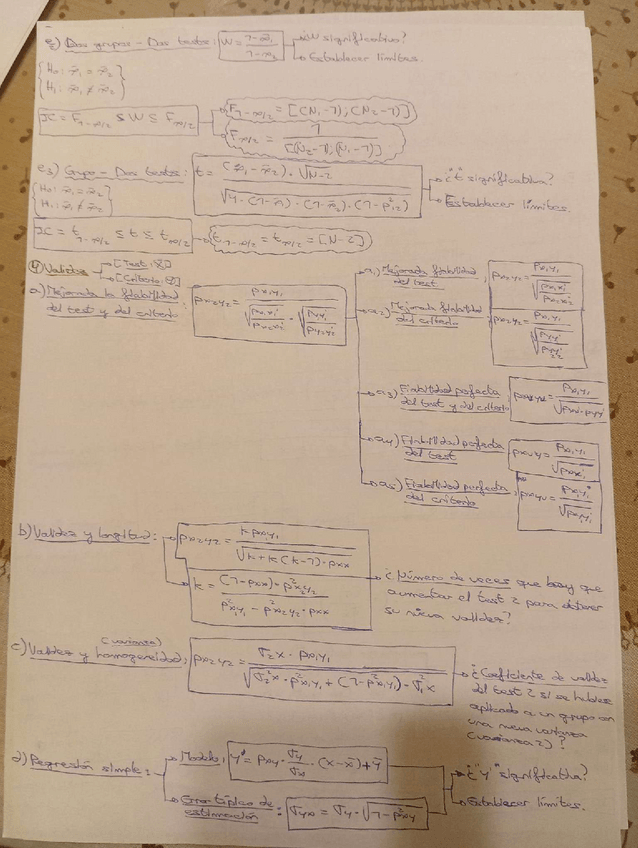 e2) Dos grupos - Dos tests: W = (1-α̂1)/(1-α̂2) → ¿W significativo?
→ Establecer límites.
{H0: α1 = α2
{H1: α1 ≠ α2
IC = F1-α/2 ≤ W ≤ Fα/2
F1-α/2 = [(N1-1);(N2-1)]
Fα/2 = 1/[(N2-1);(N1-1)]
e3) Grupo - Dos tests: t = (α̂1-α̂2)·√N-2 / √4·(1-α̂1)·(1-α̂2)·(1-ρ²12) → ¿t significativa?
→ Establecer límites.
{H0: α1 = α2
{H1: α1 ≠ α2
IC = t1-α/2 ≤ t ≤ tα/2 → t1-α/2 = tα/2 = [N-2]
4) Validez → [Test: X]
→ [Criterio: Y]
a) Mejorada la fiabilidad
del test y del criterio: ρx2y2 = ρx1y1 / (√ρx1x1'/ρx2x2' · √ρy1y1'/ρy2y2')
a1) Mejorada fiabilidad
del test: ρx2y2 = ρx1y1 / √ρx1x1'/ρx2x2'
a2) Mejorada fiabilidad
del criterio: ρx2y2 = ρx1y1 / √ρy1y1'/ρy2y2'
a3) Fiabilidad perfecta
del test y del criterio:
a4) Fiabilidad perfecta
del test
a5) Fiabilidad perfecta
del criterio:
b) Validez y longitud: ρx2y2 = k ρx1y1 / √k+k(k-1)·ρxx
k = (1-ρxx)·ρ²x2y2 / (ρ²x1y1 - ρ²x2y2·ρxx) → ¿Número de veces que hay que
aumentar el test 2 para obtener
su nueva validez?
(varianza)
c) Validez y homogeneidad: ρx2y2 = σ2x·ρx1y1 / √σ²2x·ρ²x1y1+(1-ρ²x1y1)·σ²1x → ¿Coeficiente de validez
del test 2 si se hubiese
aplicado a un grupo con
una nueva varianza
(varianza 2)?
d) Regresión simple: → Modelo: Y' = ρxy·σy/σx·(x-x̄)+ȳ → ¿"Y" significativa?
→ Error típico de
estimación: σyx = σy·√1-ρ²xy → Establecer límites.